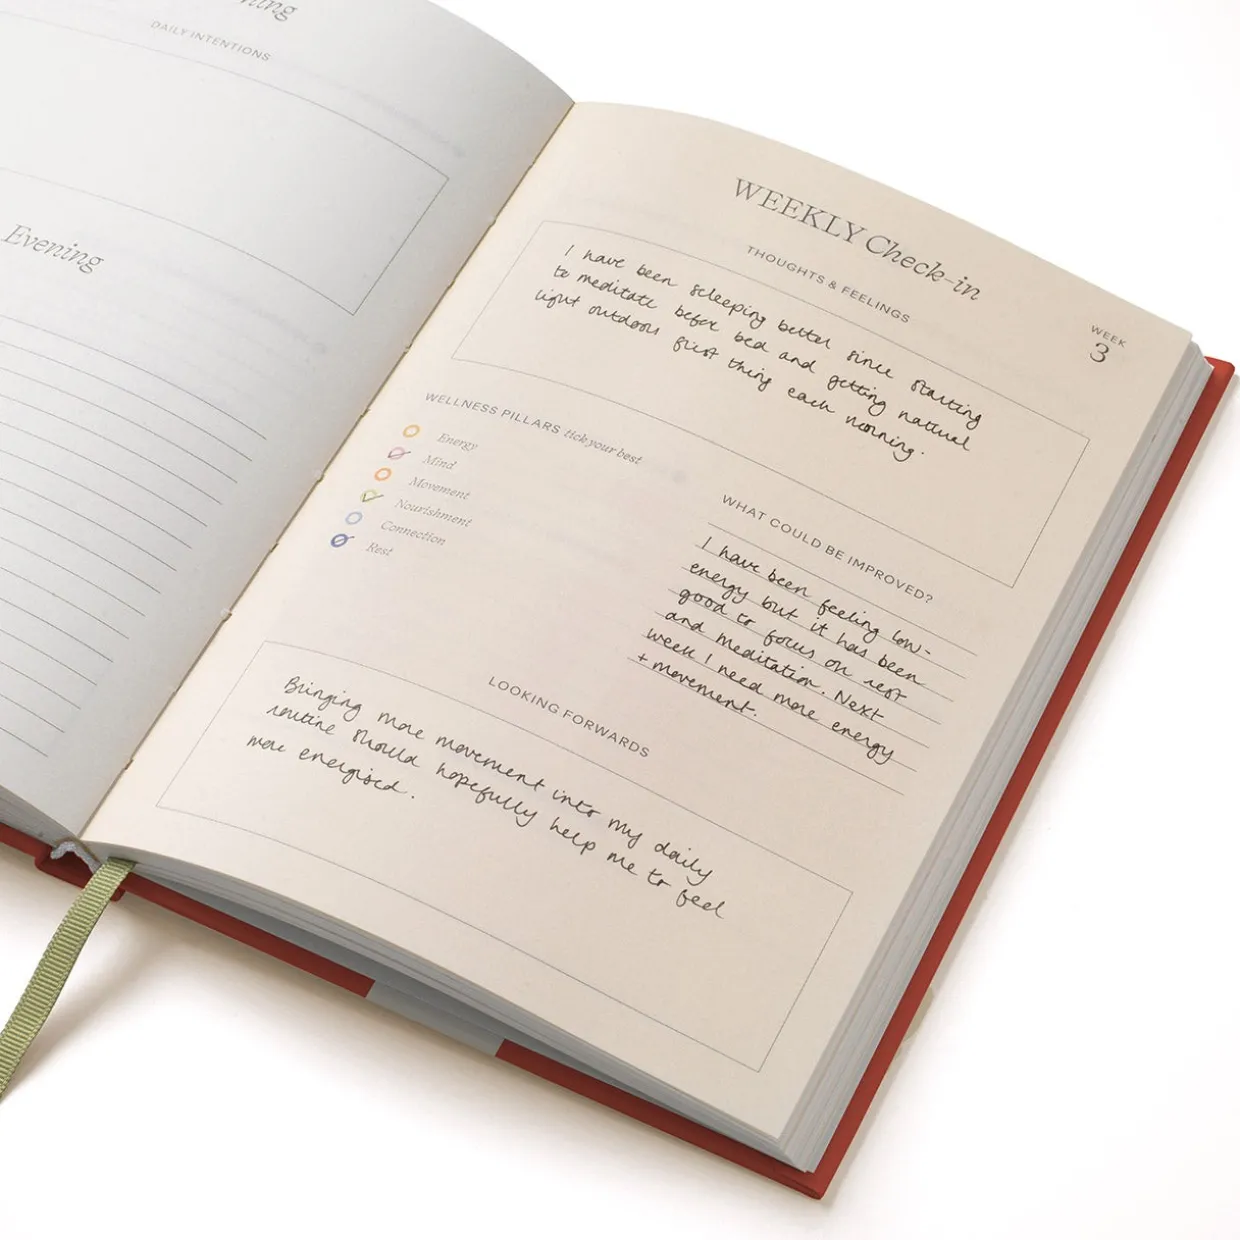 DAILY INTENTIONS
Evening
WEEKLY Check-in
THOUGHTS & FEELINGS
WEEK
3
I have been scleeping better since starting
to meditate before bed and getting natural
light outdoors first thing each morning.
WELLNESS PILLARS tick your best
Energy
Mind
Movement
Nourishment
Connection
Rest
WHAT COULD BE IMPROVED?
I have been feeling low-
energy but it has been
good to focus on rest
and meditation. Next
week I need more energy
+ movement.
LOOKING FORWARDS
Bringing more movement into my daily
routine should hopefully help me to feel
more energised.